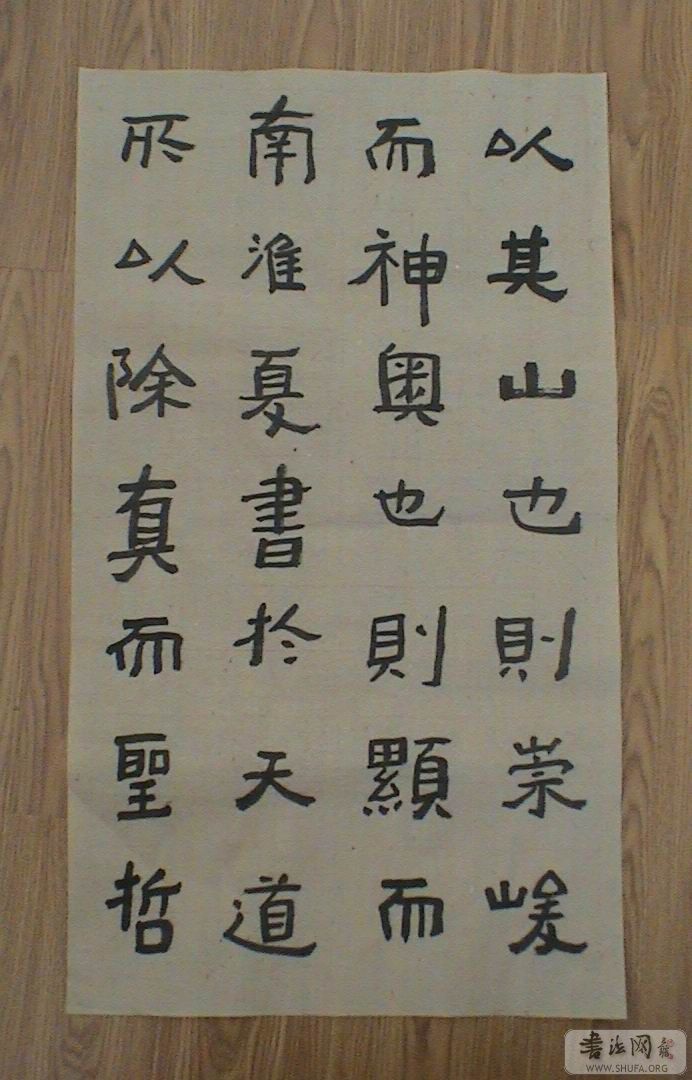 以其山也則崇峻
而神奥也則顯而
南淮夏書於天道
所以除真而聖哲
書法网
WWW.SHUFA.ORG